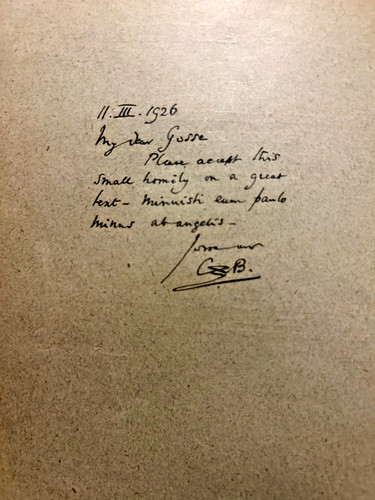 11. III. 1926
My dear Gosse
Please accept this
small homily on a great
text - minuisti eum paulo
minus ab angelis -
B.